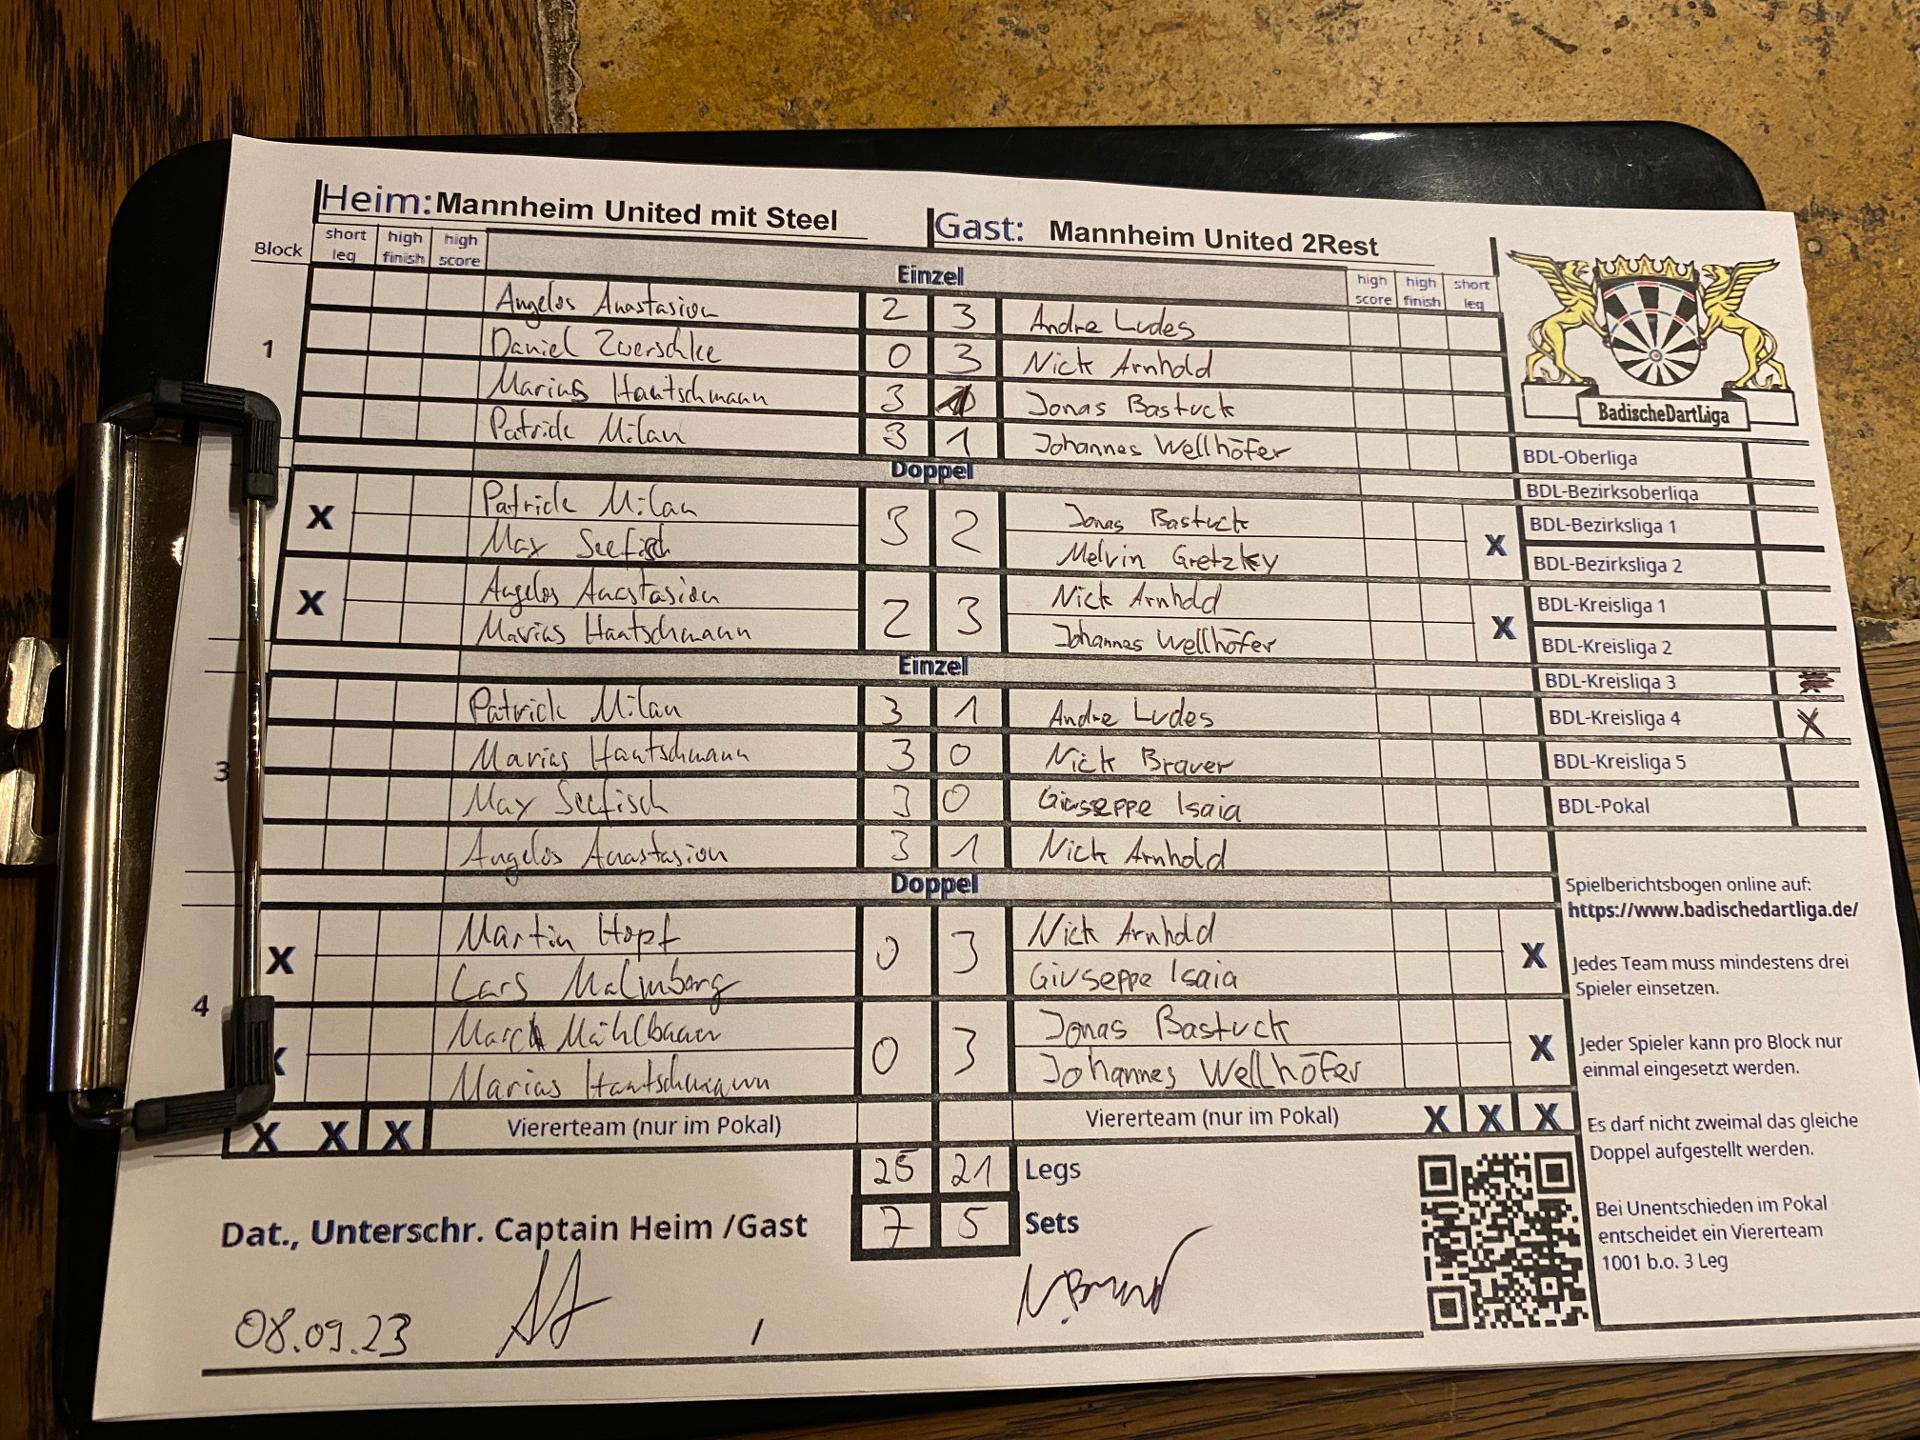 Heim: Mannheim United mit Steel
Gast: Mannheim United 2Rest
Block short leg high finish high score
Einzel
high score high finish short leg
1
Angelos Anastasiou 2 3 Andre Ludes
Daniel Zwerschke 0 3 Nick Arnhold
Marius Hautschmann 3 Jonas Bastuck
Patrick Milan 3 1 Johannes Wellhöfer
Doppel
X Patrick Milan 3 2 Jonas Bastuck X
Max Seefisch Melvin Gretzky
X Angelos Anastasiou 2 3 Nick Arnhold X
Marius Hautschmann Johannes Wellhöfer
Einzel
3
Patrick Milan 3 1 Andre Ludes
Marius Hautschmann 3 0 Nick Brauer
Max Seefisch 3 0 Giuseppe Isaia
Angelos Anastasiou 3 1 Nick Arnhold
Doppel
4
X Martin Hopf 0 3 Nick Arnhold X
Lars Malmborg Giuseppe Isaia
X Mühlbauer 0 3 Jonas Bastuck X
Marius Hautschmann Johannes Wellhöfer
X X X Viererteam (nur im Pokal) Viererteam (nur im Pokal) X X X
25 21 Legs
7 5 Sets
Dat., Unterschr. Captain Heim /Gast
08.09.23 /
BadischeDartLiga
BDL-Oberliga
BDL-Bezirksoberliga
BDL-Bezirksliga 1
BDL-Bezirksliga 2
BDL-Kreisliga 1
BDL-Kreisliga 2
BDL-Kreisliga 3
BDL-Kreisliga 4 X
BDL-Kreisliga 5
BDL-Pokal
Spielberichtsbogen online auf:
https://www.badischedartliga.de/
Jedes Team muss mindestens drei
Spieler einsetzen.
Jeder Spieler kann pro Block nur
einmal eingesetzt werden.
Es darf nicht zweimal das gleiche
Doppel aufgestellt werden.
Bei Unentschieden im Pokal
entscheidet ein Viererteam
1001 b.o. 3 Leg